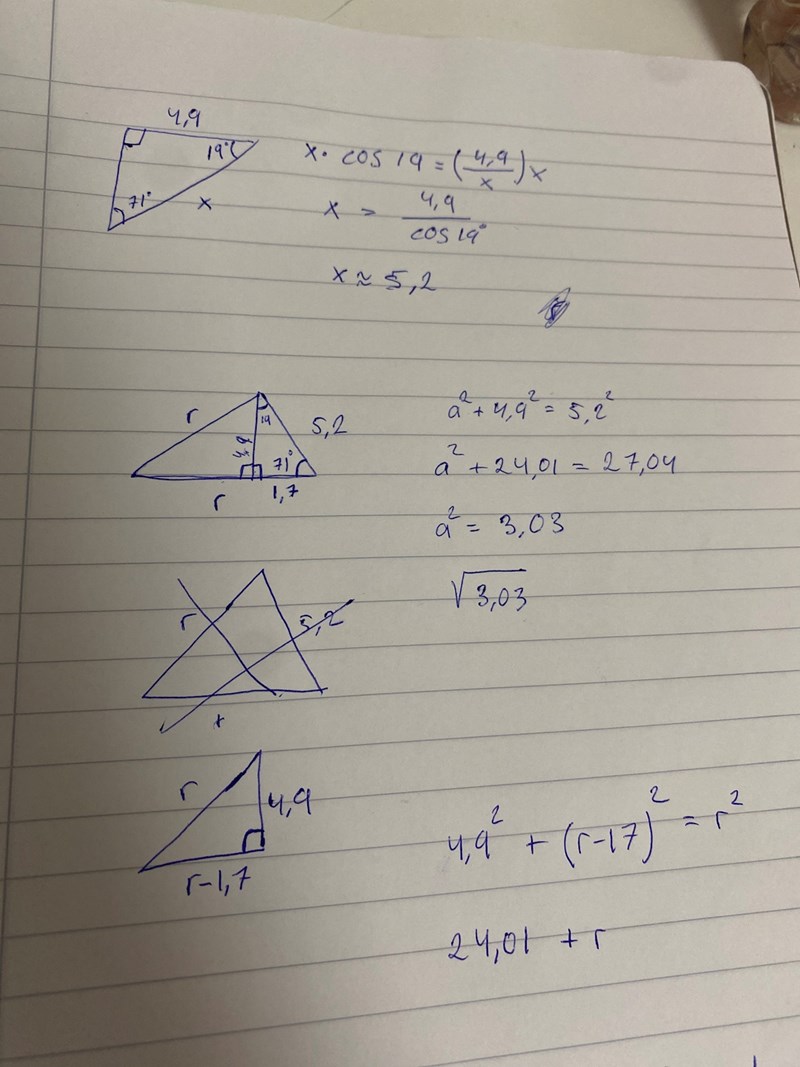 4,9
19°
71°
x
x · cos 19 = (4,9/x)x
x = 4,9/cos 19°
x ≈ 5,2
r
19
5,2
4,9
71°
r
1,7
a² + 4,9² = 5,2²
a² + 24,01 = 27,04
a² = 3,03
√3,03
r
5,2
r
4,9
r-1,7
4,9² + (r-17)² = r²
24,01 + r